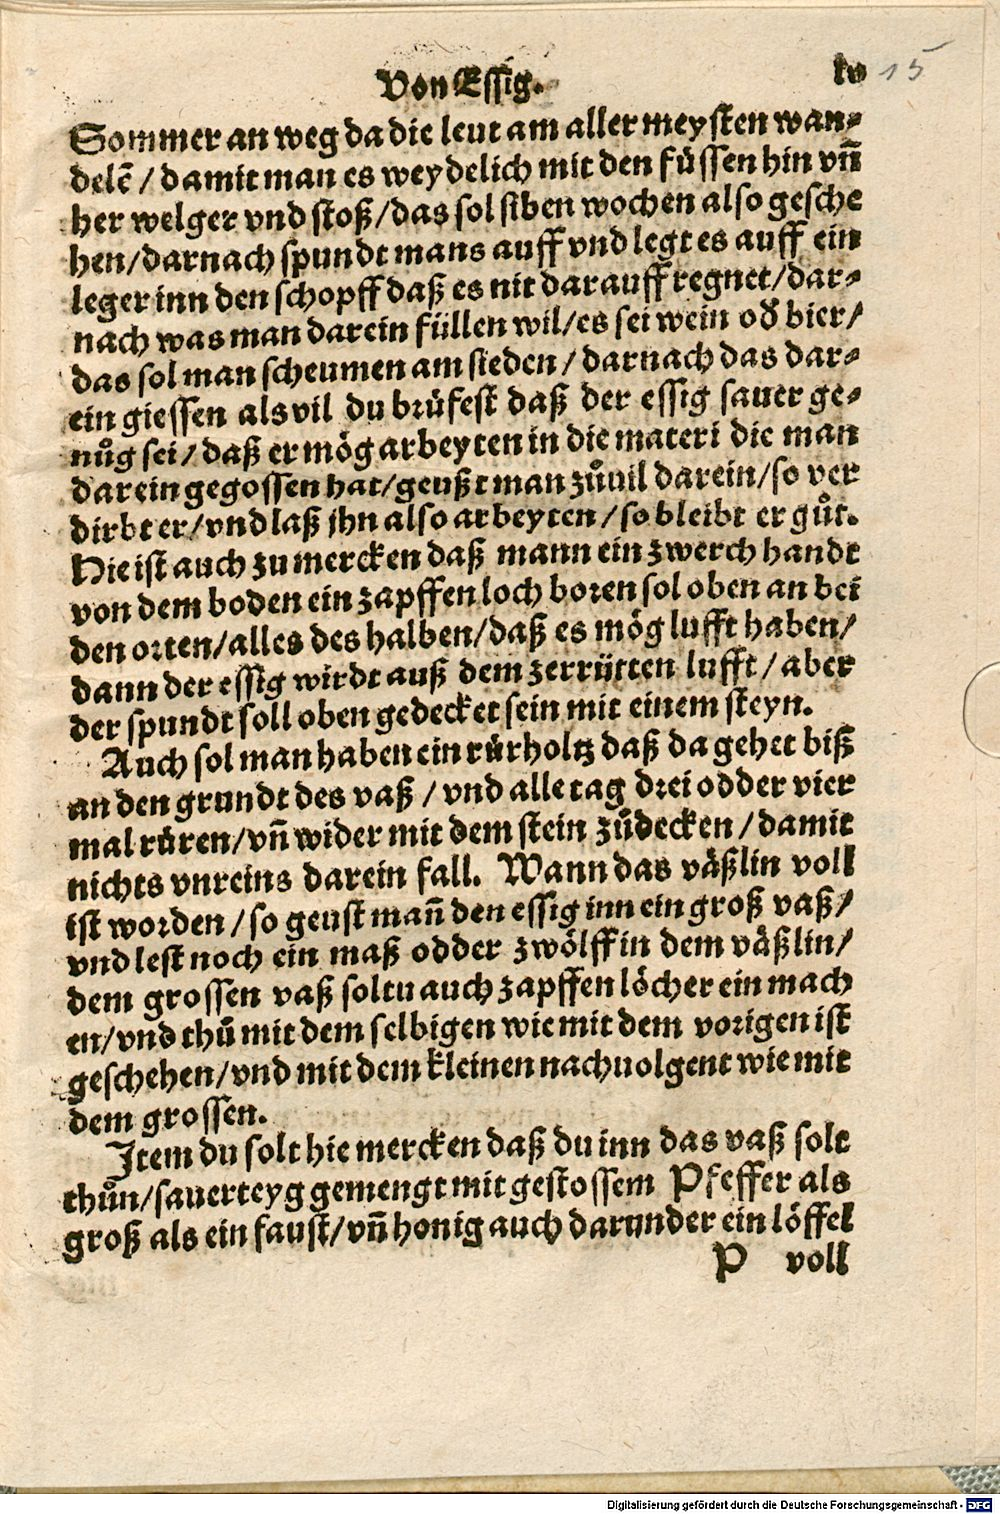 Von Essig. lv 15
Sommer an weg da die leut am aller meysten wan-
delē / damit man es weydelich mit den füssen hin vñ
her welger vnd stoß/das sol siben wochen also gesche
hen/darnach spundt mans auff vnd legt es auff ein
leger inn den schopff daß es nit darauff regnet/dar-
nach was man darein füllen wil/es sei wein oď bier/
das sol man scheumen am sieden / darnach das dar-
ein giessen als vil du brüfest daß der essig sauer ge-
nůg sei/daß er mög arbeyten in die materi die man
darein gegossen hat/geußt man zůuil darein/so ver
dirbt er/vnd laß jhn also arbeyten/so bleibt er gůt.
Hie ist auch zu mercken daß mann ein zwerch handt
von dem boden ein zapffen loch boren sol oben an bei
den orten/alles des halben/daß es mög lufft haben/
dann der essig wirdt auß dem zerrütten lufft/aber
der spundt soll oben gedecket sein mit einem steyn.
Auch sol man haben ein rürholtz daß da gehet biß
an den grundt des vaß / vnd alle tag drei odder vier
mal rüren/vñ wider mit dem stein zůdecken/damit
nichts vnreins darein fall. Wann das väßlin voll
ist worden/so geust mañ den essig inn ein groß vaß/
vnd lest noch ein maß odder zwölff in dem väßlin/
dem grossen vaß soltu auch zapffen löcher ein mach
en/vnd thů mit dem selbigen wie mit dem vorigen ist
geschehen/vnd mit dem kleinen nachuolgent wie mit
dem grossen.
Item du solt hie mercken daß du inn das vaß solt
thůn/sauerteyg gemengt mit gestossem Pfeffer als
groß als ein faust/vñ honig auch darunder ein löffel
P voll
Digitalisierung gefördert durch die Deutsche Forschungsgemeinschaft - DFG